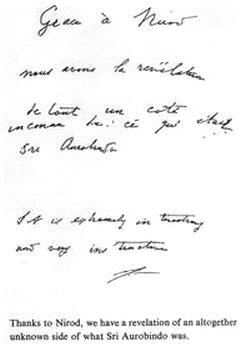 Grace à Nirod
nous avons la révélation
de tout un coté
inconnu de ce qui était
Sri Aurobindo
It is extremely interesting
and very instructive
Thanks to Nirod, we have a revelation of an altogether
unknown side of what Sri Aurobindo was.